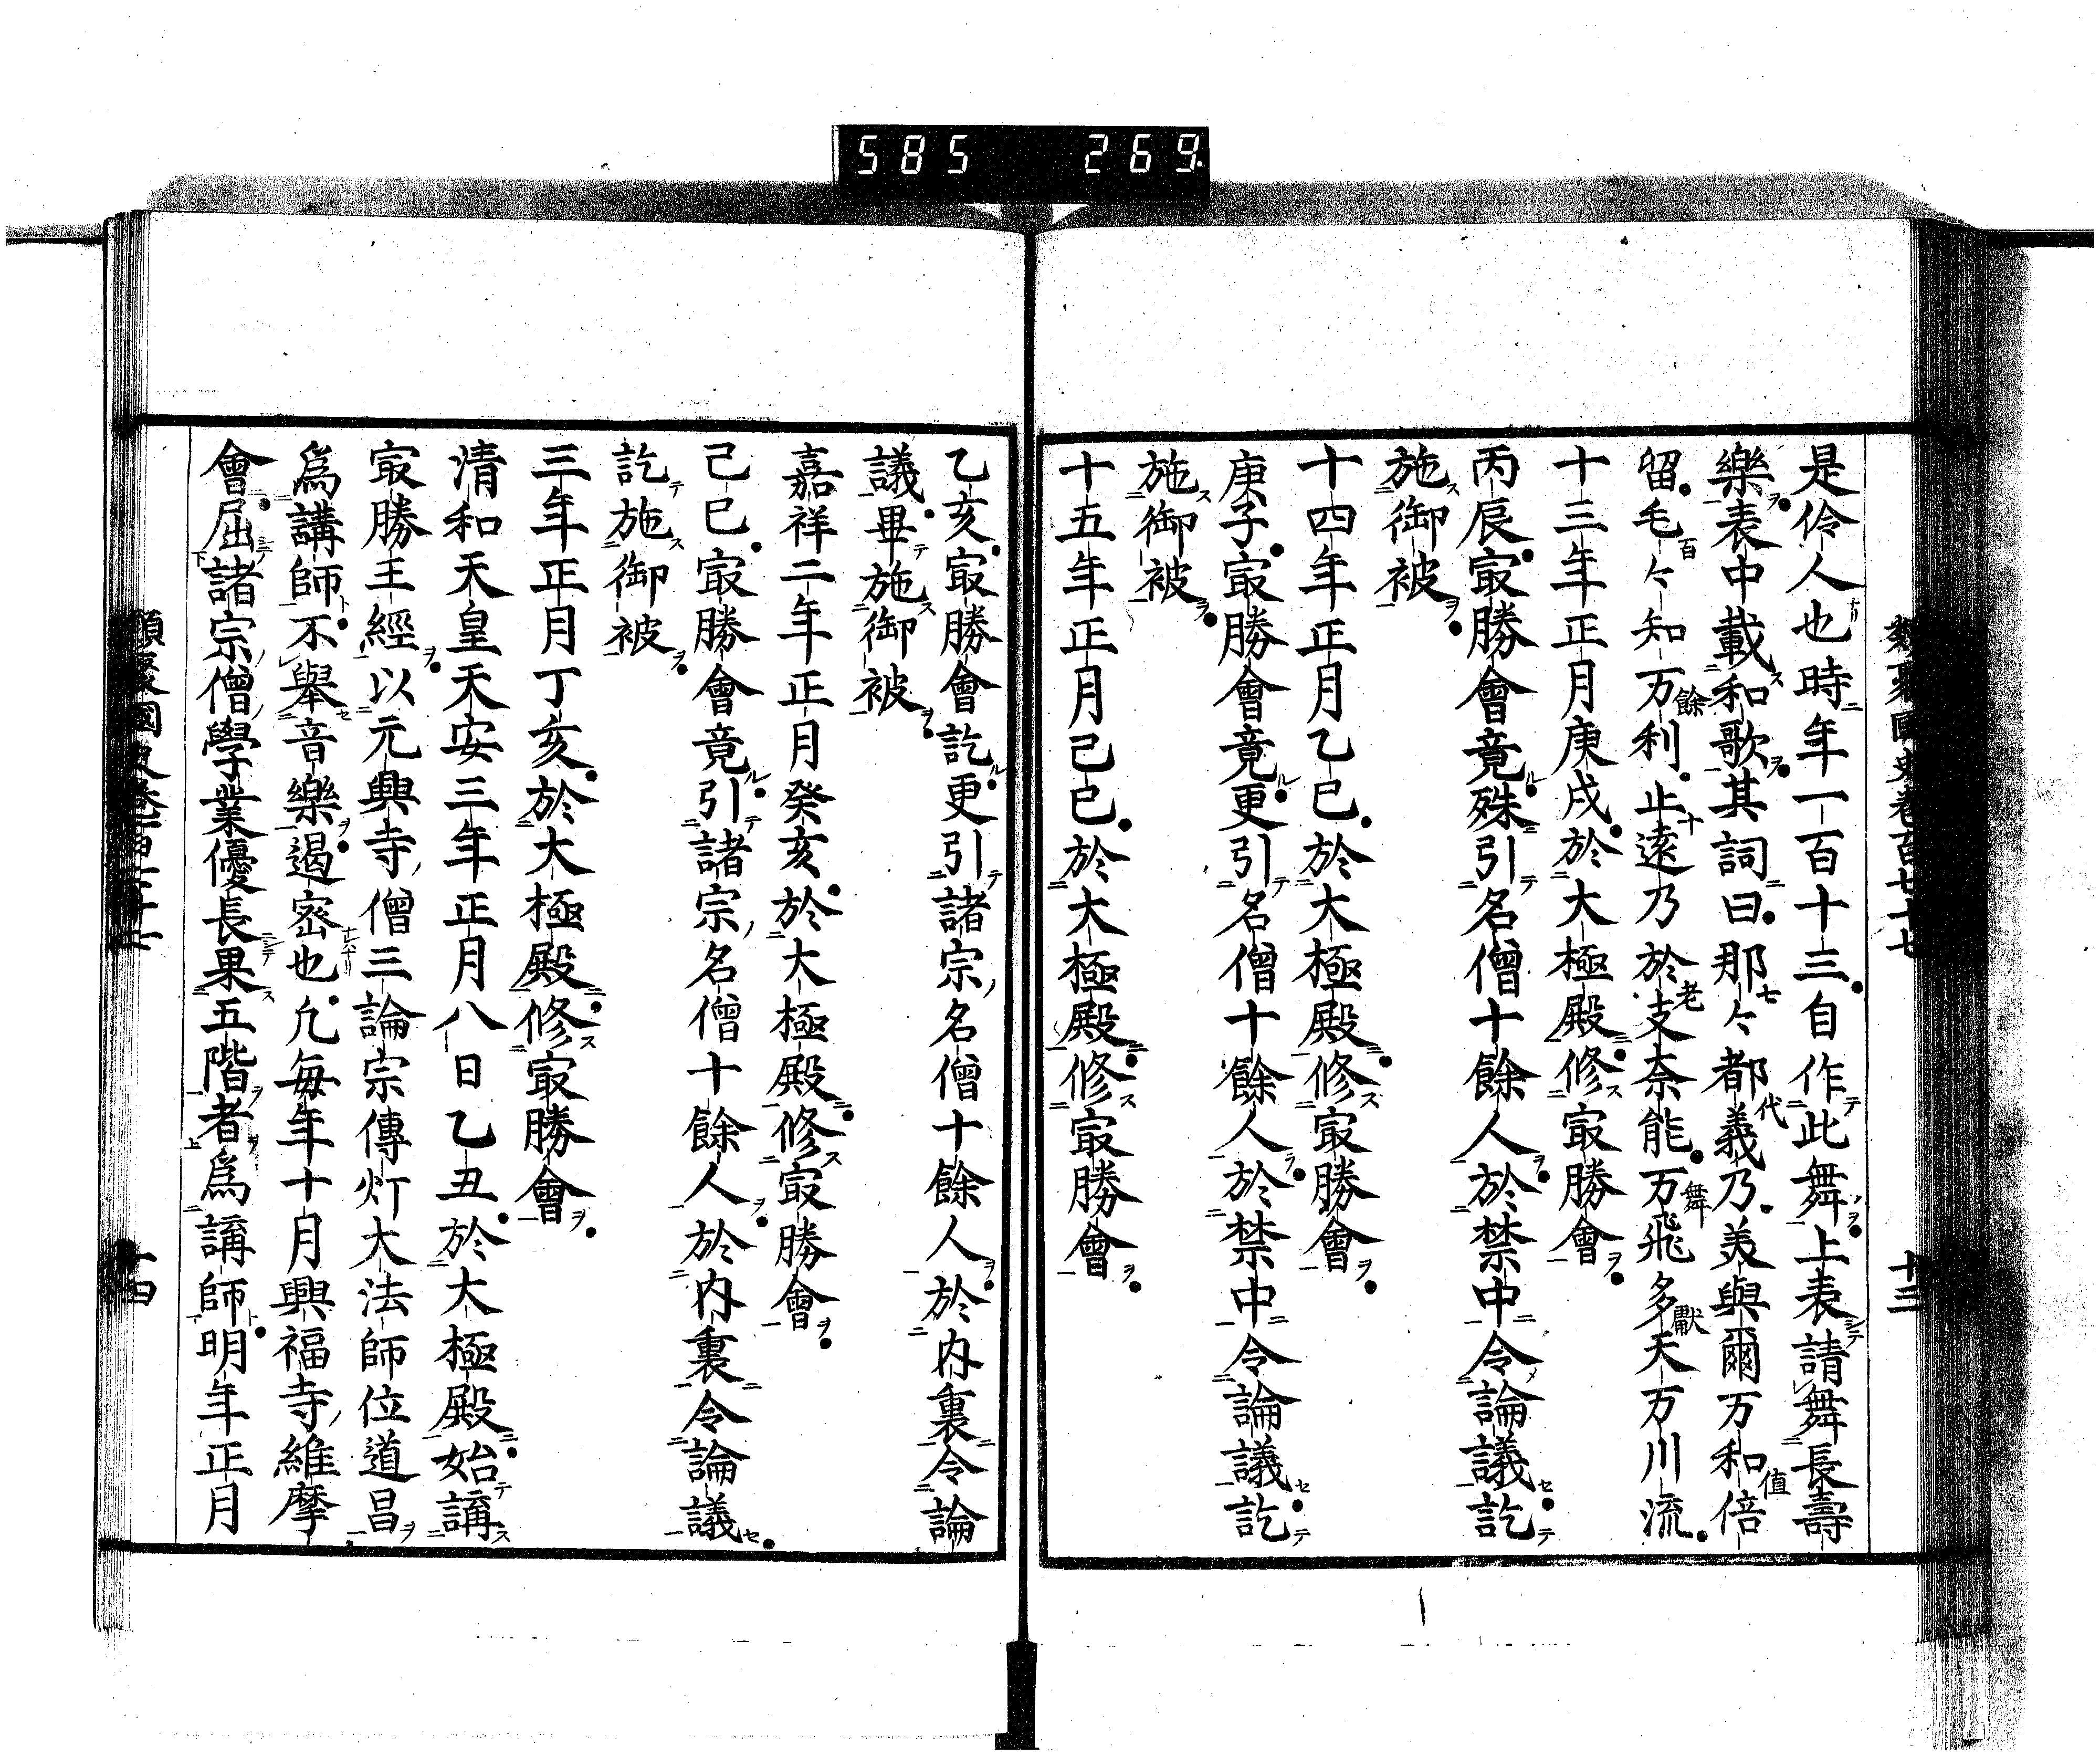 585 269
類聚國史卷百七十七 十三
是伶人也時年一百十三自作此舞上表請舞長壽
樂表中載和歌其詞曰那々都義乃美與爾万和倍
留毛々知万利止遠乃於支奈能万飛多天万川流
十三年正月庚戌於大極殿修㝡勝會
丙辰㝡勝會竟殊引名僧十餘人於禁中令論議訖
施御被
十四年正月乙巳於大極殿修㝡勝會
庚子㝡勝會竟更引名僧十餘人於禁中令論議訖
施御被
十五年正月己巳於大極殿修㝡勝會
乙亥㝡勝會訖更引諸宗名僧十餘人於内裏令論
議畢施御被
嘉祥二年正月癸亥於大極殿修㝡勝會
己巳㝡勝會竟引諸宗名僧十餘人於内裏令論議
訖施御被
三年正月丁亥於大極殿修㝡勝會
清和天皇天安三年正月八日乙丑於大極殿始講
㝡勝王經以元興寺僧三論宗傳灯大法師位道昌
爲講師不舉音樂遏密也凢每年十月興福寺維摩
會屈諸宗僧學業優長果五階者爲講師明年正月
類聚國史卷百七十七 十四